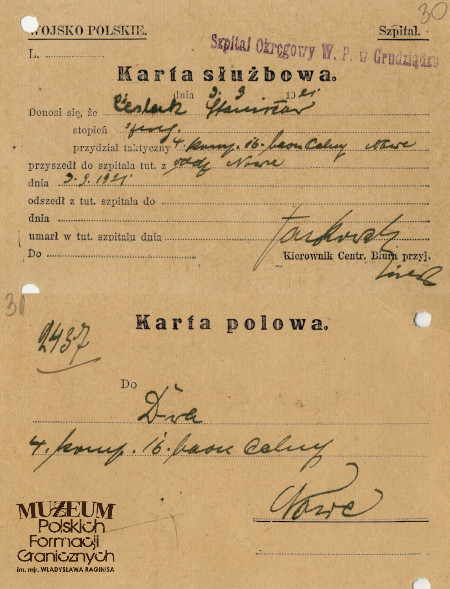 30
WOJSKO POLSKIE.
Szpital.
L.
Szpital Okręgowy W. P. w Grudziądzu
Karta służbowa.
dnia 3. 9 1921
Donosi się, że Cieślak Stanisław
stopień szereg.
przydział taktyczny 4. komp. 16. baon Celny Nowe
przyszedł do szpitala tut. z oddz Nowe
dnia 3.9.1921.
odszedł z tut. szpitala do
dnia
umarł w tut. szpitalu dnia
Do
Kierownik Centr. Biura przyj.
30
Karta polowa.
2437
Do
D-wa
4. komp. 16. baon Celny
Nowe
MUZEUM
Polskich
Formacji
Granicznych
im. mjr. WŁADYSŁAWA RAGINISA